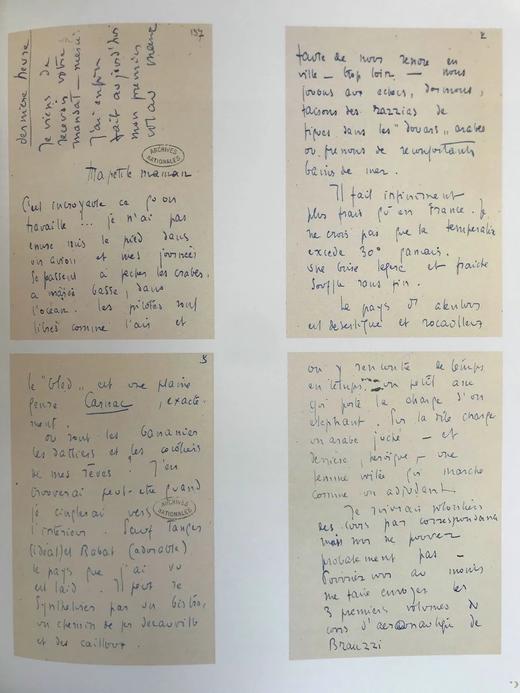 dernière heure
Je viens de
recevoir votre
mandat - merci.
J'ai enfin
fait aujourd'hui
mon premier
vol au Maroc
137
ARCHIVES
NATIONALES
Ma petite maman
C'est incroyable ce qu'on
travaille ... je n'ai pas
encore mis le pied dans
un avion et mes journées
se passent à pêcher les crabes,
à marée basse, dans
l'océan. Les pilotes sont
libres comme l'air et
2
faute de nous rendre en
ville - trop loin - nous
jouons aux échecs, dormons,
faisons des razzias de
figues dans les "douars" arabes
ou prenons de réconfortants
bains de mer.
Il fait infiniment
plus frais qu'en France. Je
ne crois pas que la température
excède 30° jamais.
Une brise légère et fraîche
souffle sans fin.
Le pays d'alentour
est désertique et rocailleux
3
le "bled" est une plaine
genre Carnac, exacte-
ment.
Où sont les bananiers
les dattiers et les cocotiers
de mes rêves? J'en
trouverai peut-être quand
je cinglerai vers
l'intérieur. Sauf Tanger
(idéal) et Rabat (adorable)
le pays que j'ai vu
est laid. Il peut se
synthétiser par un bistro,
un chemin de fer Decauville
et des cailloux.
ARCHIVES
NATIONALES
on y rencontre de temps
en temps un petit âne
qui porte la charge d'un
éléphant. Sur la dite charge
un arabe juché - et
derrière, héroïque, - une
femme voilée qui marche
comme un adjudant.
Je suivrais volontiers
des cours par correspondance
mais vous ne pouvez
probablement pas -
Pourriez vous au moins
me faire envoyer les
3 premiers volumes du
cours d'aéronautique de